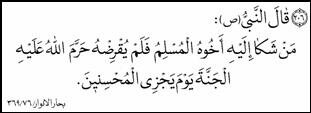 ٢٠٦ قَالَ النَّبِیُّ (ص):
مَنْ شَکَا إِلَیْهِ أَخُوهُ الْمُسْلِمُ فَلَمْ یُقْرِضْهُ حَرَّمَ اللهُ عَلَیْهِ
الْجَنَّةَ یَوْمَ یَجْزِی الْمُحْسِنِینَ.
بحار الانوار/٧٦/٣٦٩